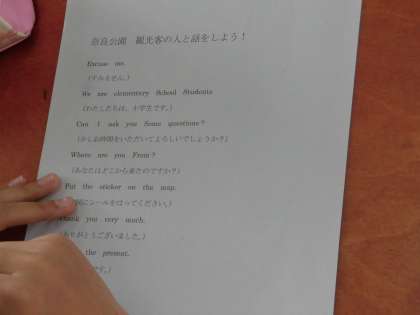 奈良公園 観光客の人と話をしよう！
Excuse me.
（すみません。）
We are elementary School Students
（わたしたちは、小学生です。）
Can I ask you Some questions?
（少しお時間をいただいてよろしいでしょうか？）
Where are you From?
（あなたはどこから来たのですか？）
Put the sticker on the map.
にシールをはってください。）
you very much.
ありがとうございました。）
the present.
です。）